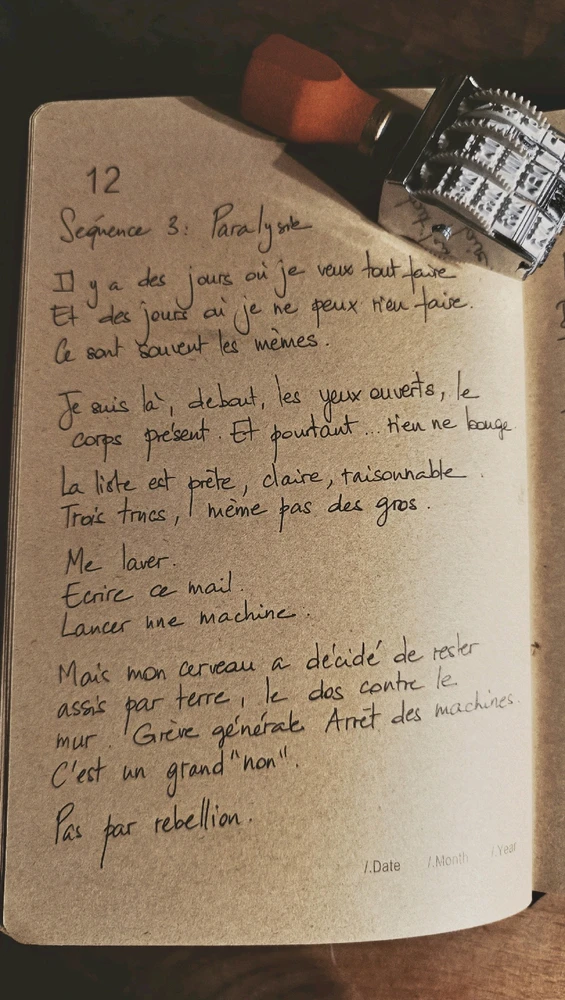 12
Séquence 3: Paralysie
Il y a des jours où je veux tout faire
Et des jours où je ne peux rien faire.
Ce sont souvent les mêmes.
Je suis là, debout, les yeux ouverts, le
corps présent. Et pourtant... rien ne bouge.
La liste est prête, claire, raisonnable.
Trois trucs, même pas des gros.
Me laver.
Ecrire ce mail.
Lancer une machine.
Mais mon cerveau a décidé de rester
assis par terre, le dos contre le
mur. Grève générale. Arrêt des machines.
C'est un grand "non".
Pas par rebellion.
/.Date /.Month /.Year